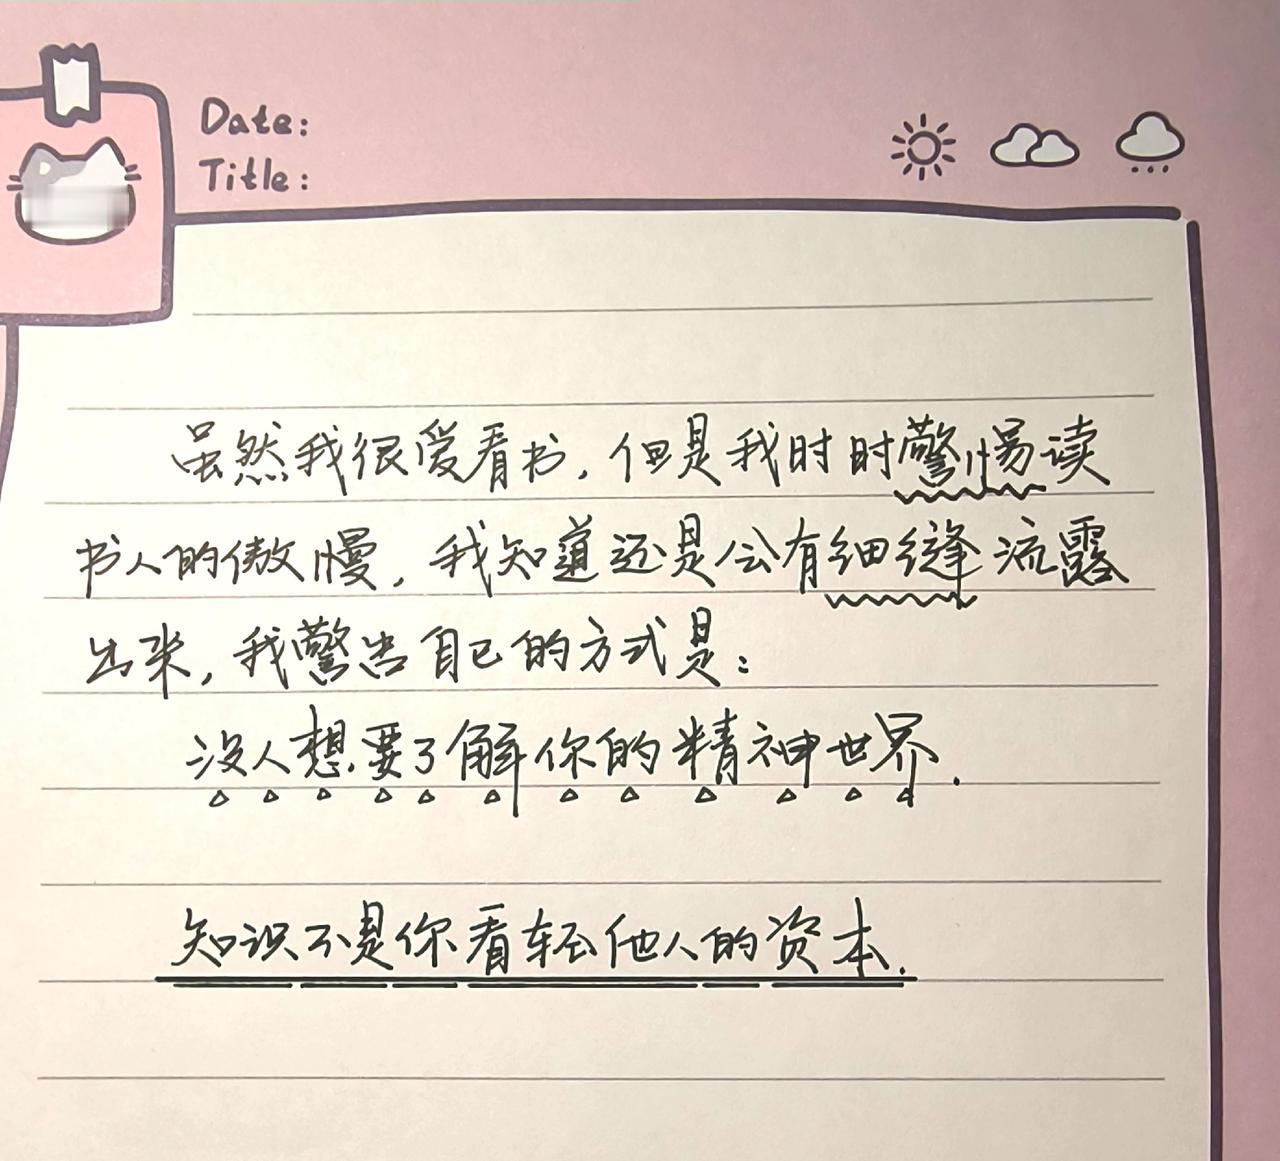 Date:
Title:
虽然我很爱看书，但是我时时警惕读
书人的傲慢，我知道还是会有细缝流露
出来，我警告自己的方式是：
没人想要了解你的精神世界.
知识不是你看轻他人的资本.